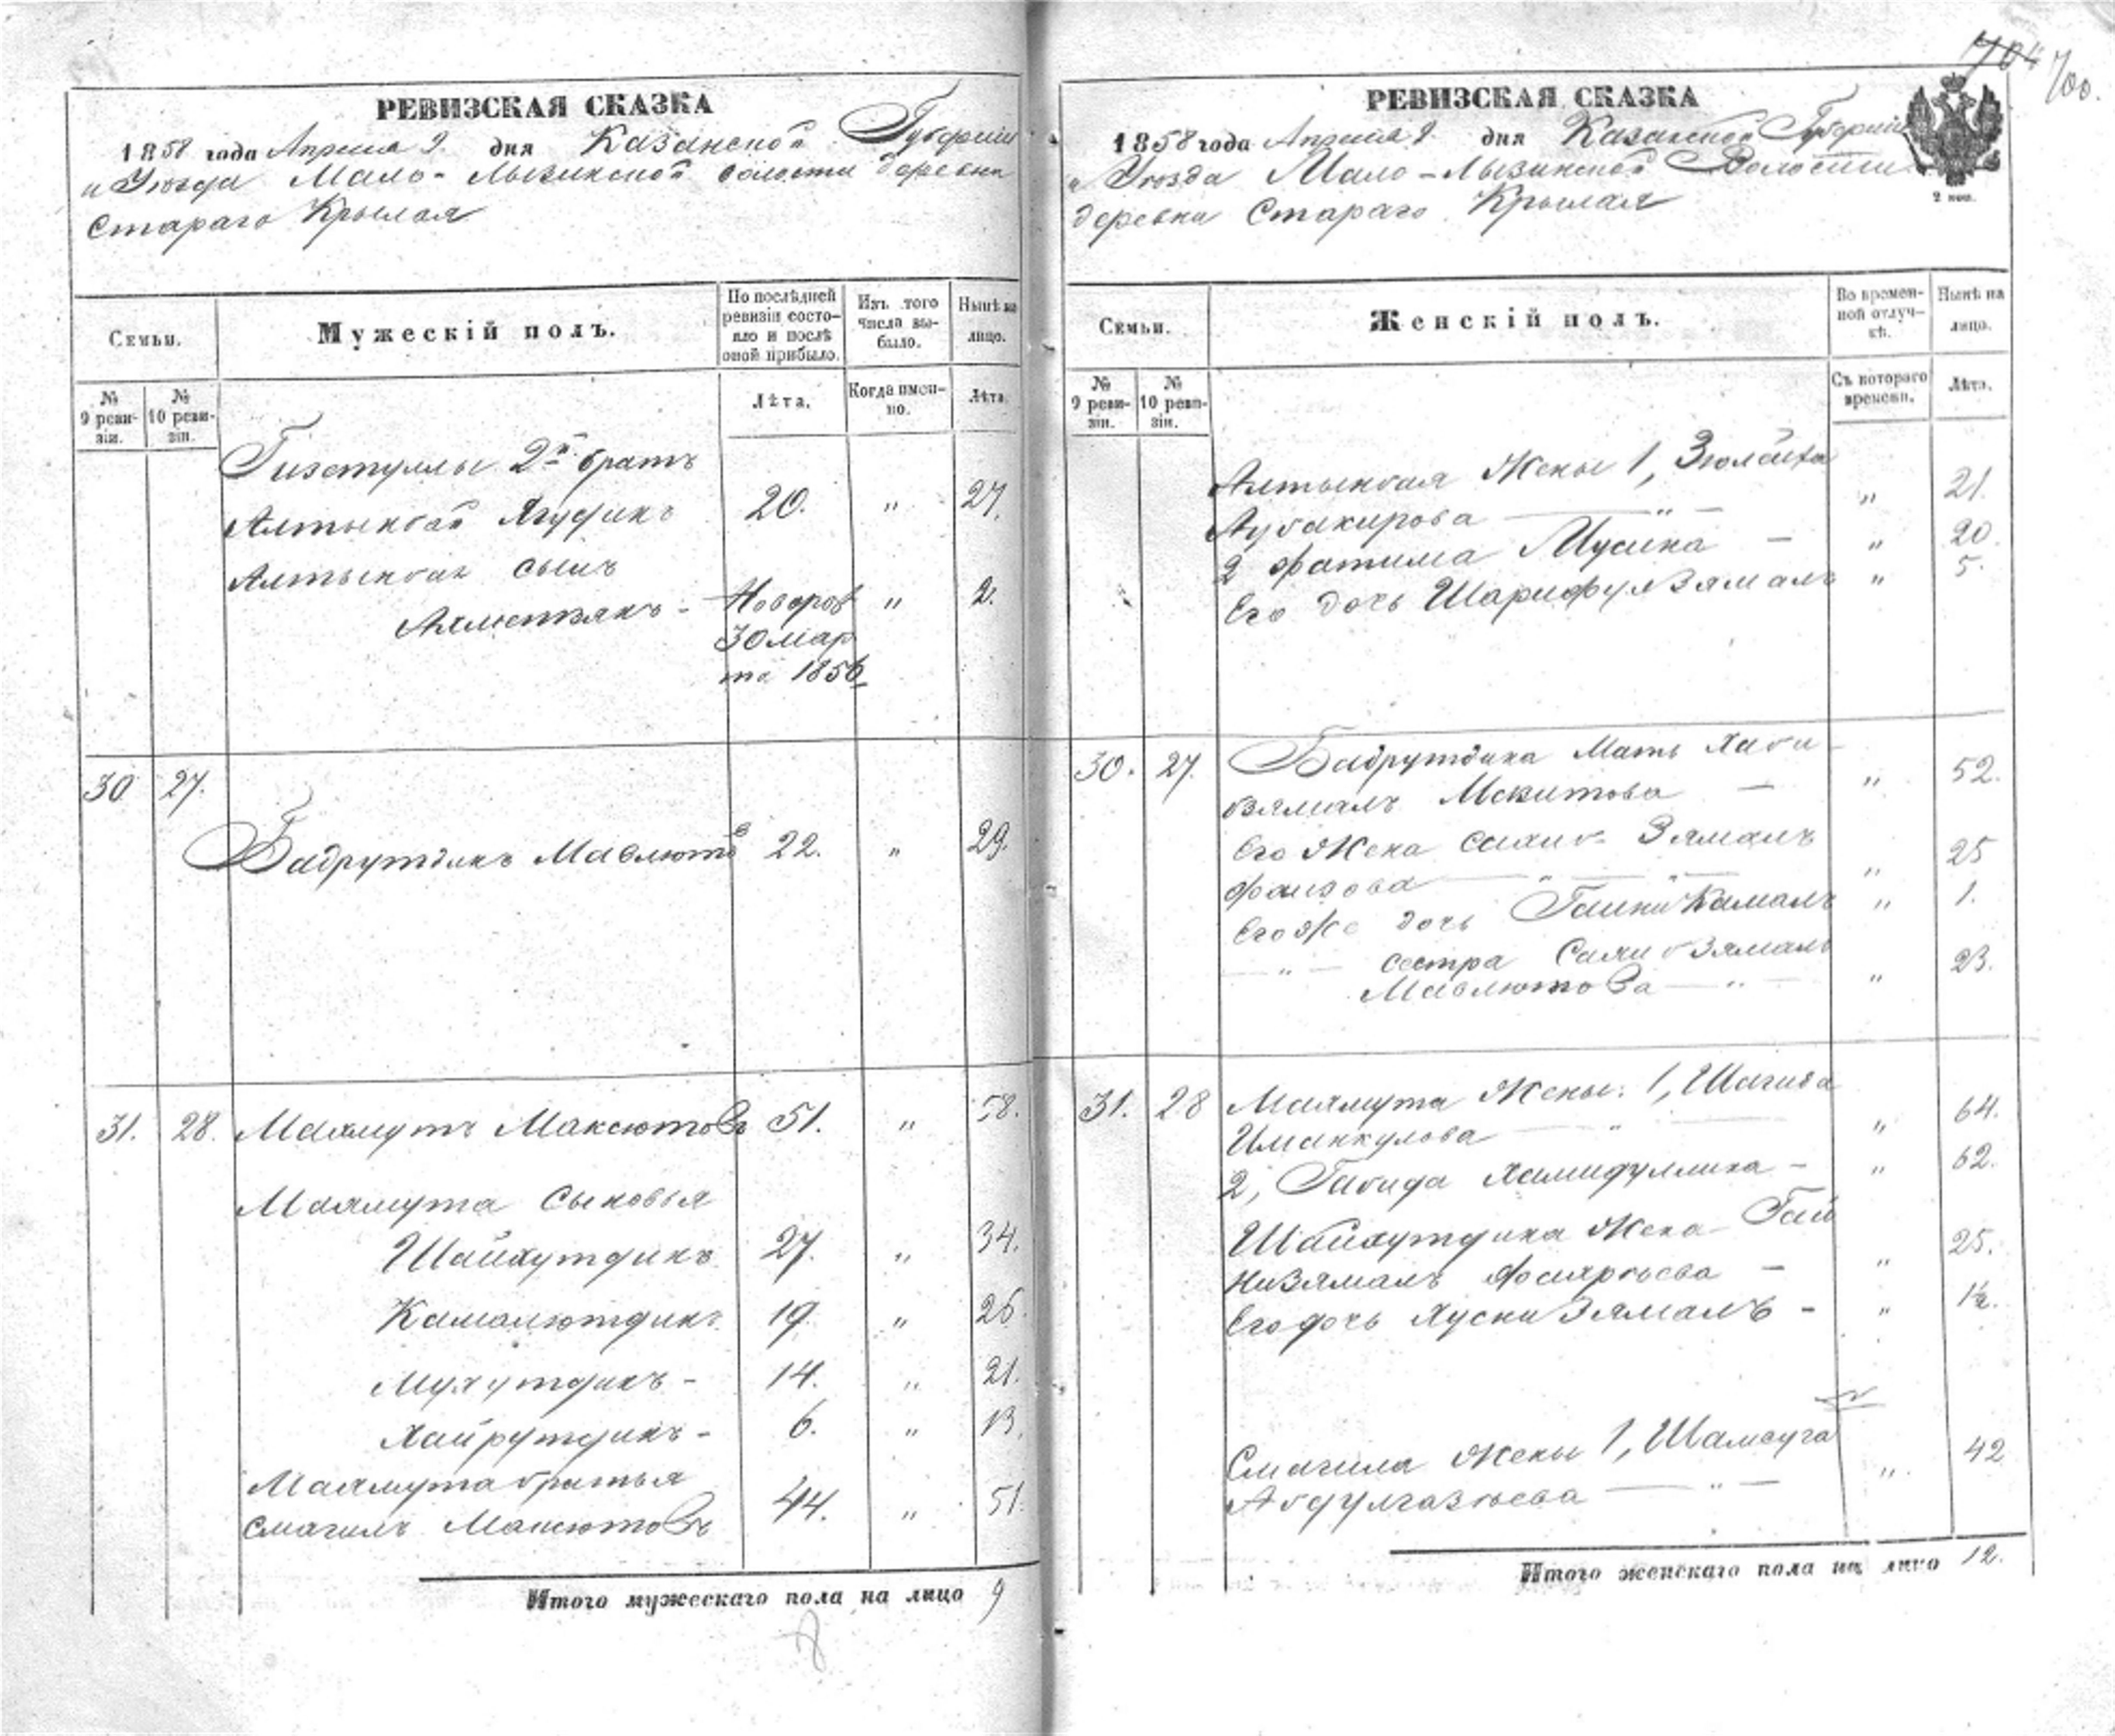 704 700.
РЕВИЗСКАЯ СКАЗКА
1858 года Апреля 9. дня Казанской Губернии
и Уезда Мало-Лызинской волости деревни
Стараго Крылая
Семьи.
Мужескій полъ.
По послѣдней ревизіи состояло и послѣ оной прибыло.
Изъ того числа выбыло.
Нынѣ на лицо.
№ 9 ревизіи.
№ 10 ревизіи.
Лѣта.
Когда именно.
Лѣта.
Гизетуллы 2й братъ
Алтынбай Ягудинъ 20. " 27.
Алтынбая сынъ
Ахметзянъ - Новорож " 2.
30 мар
та 1856
30 27.
Бадрутдинъ Мавлютов 22. " 29.
31. 28. Махмутъ Максютовъ 51. " 58.
Махмута сыновья
Шайхутдинъ 27. " 34.
Камалютдинъ 19. " 26.
Мухутдинъ - 14. " 21.
Хайрутдинъ - 6. " 13.
Махмута братья
Смагилъ Максютовъ 44. " 51.
Итого мужескаго пола на лицо 9
РЕВИЗСКАЯ СКАЗКА
1858 года Апреля 9. дня Казанской Губернии
и Уезда Мало-Лызинской Волости
деревни Стараго Крылая
2 коп.
Семьи.
Женскій полъ.
Во временной отлучкѣ.
Нынѣ на лицо.
№ 9 ревизіи.
№ 10 ревизіи.
Съ котораго времени.
Лѣта.
Алтынбая Жены 1, Зюлейха
Аубакирова " " 21.
2 Фатима Мусина - " 20.
Его дочь Шарифулзямалъ " 5.
30. 27. Бадрутдина Мать Хаби-
бзямалъ Мекитова - " 52.
Его Жена Сахиб Зямалъ
Фаизова " " " 25
Его же дочь Гайникамалъ " 1.
" сестра Сахибзямалъ
Мавлютова " " 23.
31. 28 Махмута Жены: 1, Шагида
Иманкулова " " 64.
2, Габида Хамидуллина - " 62.
Шайхутдина Жена Гай
низямалъ - " 25.
Его дочь Хуснизямалъ - " 1½.
Смагила Жены 1, Шамсуга
Абдулгазыева " " 42
Итого женскаго пола на лицо 12.